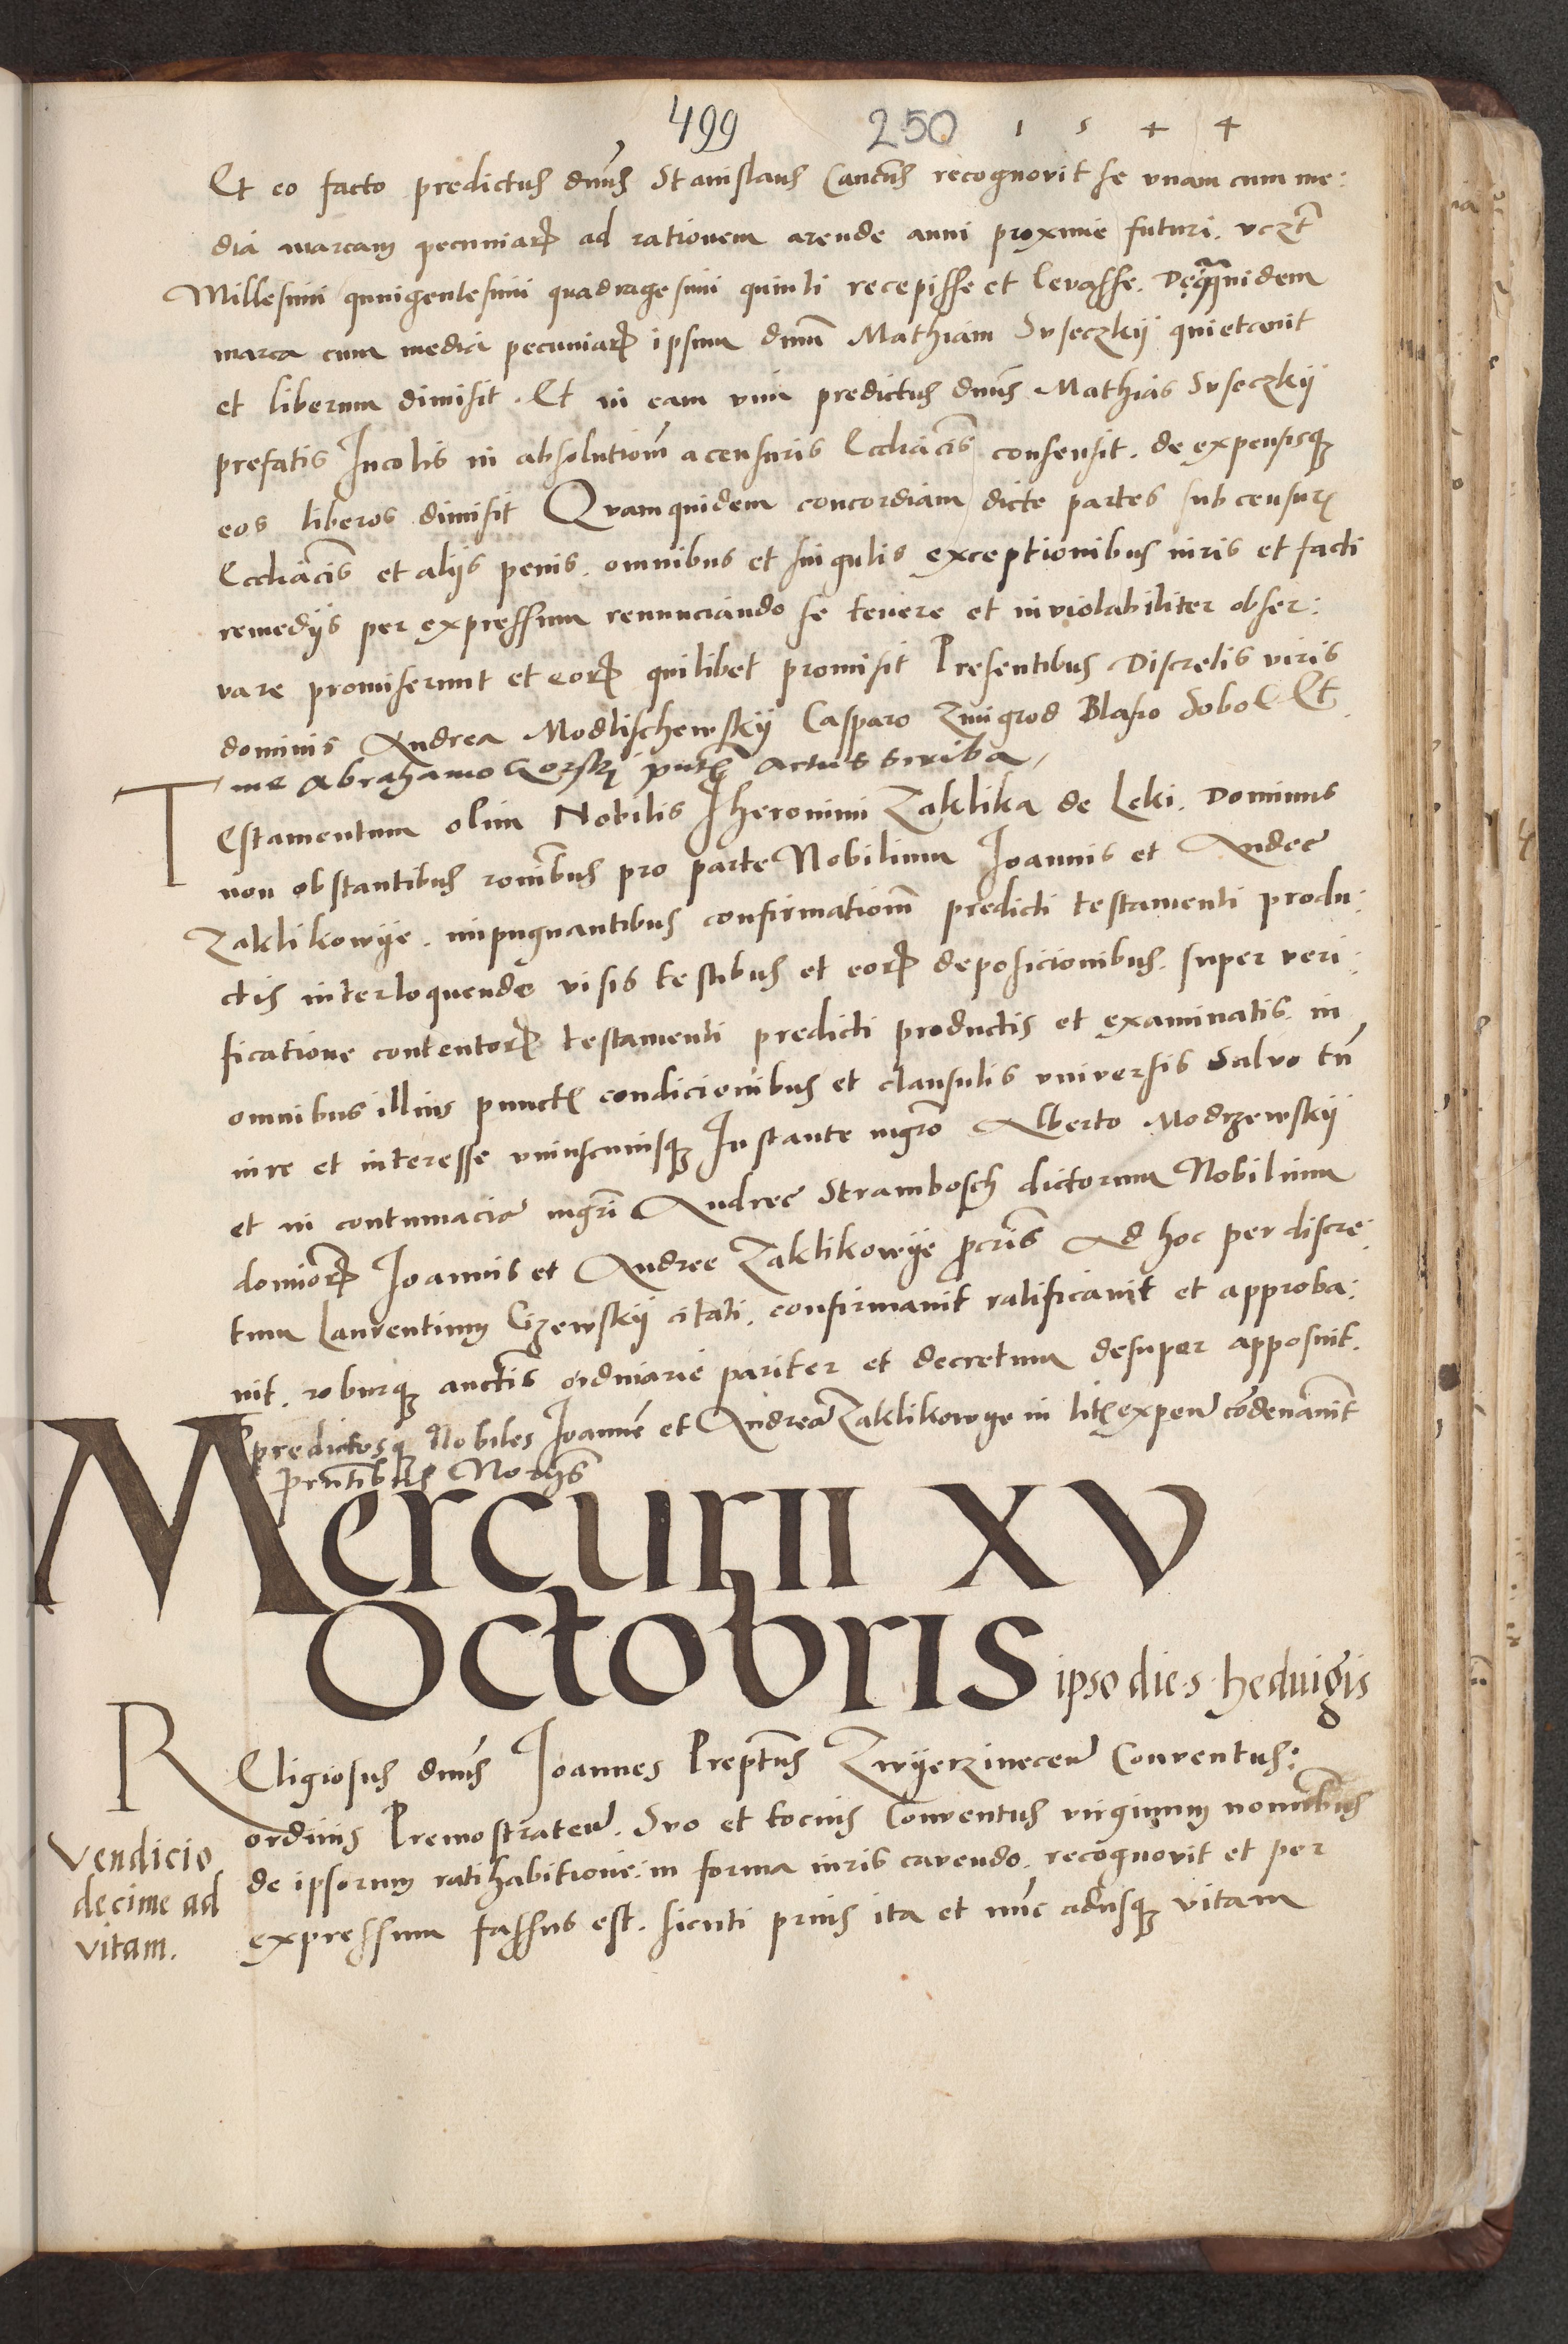 499 250 1 5 4 4
Et eo facto predictus dn̄us Stanislaus Canc̄us recognovit se vnam cum me:
dia marcam pecuniarꝝ ad rationem arende anni proxime futuri. vcꝫt
Millesimi quingentesimi quadragesimi quinti recepisse et levasse. De qua quidem
marca cum media pecuniarꝝ ipsum dnūm Mathiam Suseczkij quietavit
et liberum dimisit. Et in eam vim predictus dnūs Mathias Suseczkij
prefatis Incolis in absolutionē a censuris Eccliācis consensit. de expensisqꝫ
eos liberos dimisit Quamquidem concordiam dicte partes sub censurꝭ
Eccliācis et alijs penis. omnibus et singulis exceptionibus iuris et facti
remedijs per expressum renunciando se tenere et inviolabiliter obser:
vare promiserunt et eorꝝ quilibet promisit Presentibus Discretis viris
dominis Andrea Modlischewskij Casparo Zmigrod Blasio Sobol Et
me Abrahamo Gorski pntꝭ Actus scriba
Testamentum olim Nobilis Iheronimi Zaklika de Leki. Dominus
non obstantibus ronībus pro parte Nobilium Joannis et Andee
Zaklikowije. impugnantibus confirmationē predicti testamenti produ:
ctis interloquendo visis testibus et eorꝝ deposicionibus. super veri:
ficatione contentorꝝ testamenti predicti productis et examinatis. in
omnibus illius punctꝭ condicionibus et clausulis vniversis Salvo tn̄
iure et interesse vniuscuiusqꝫ Instante mgrō Alberto Modrzewskij
et in contumaciā mgrī Andree Strambosch dictorum Nobilium
dominorꝝ Joannis et Andree Zaklikowije procr̄is Ad hoc per discre:
tum Laurentium Cizewskij citati. confirmavit ratificavit et approba:
vit. roburqꝫ auctīs ordinarie pariter et decretum desuper apposuit.
predictosqꝫ Nobiles Joannē et Andreā Zaklikowije in litꝭ expeñ cōdenavit
prn̄tibus Norijs
Mercurii XV
Octobris ipso die s. heduigis
Religiosus dnūs Joannes Preptūs Zwijerzineceñ Conventus:
ordinis Premostrateñ. Suo et tocius Conventus virginum nominībus
de ipsorum ratihabitione: in forma iuris cavendo. recognovit et per
expressum fassus est. sicuti prius ita et nūc adusqꝫ vitam
Vendicio
decime ad
vitam.